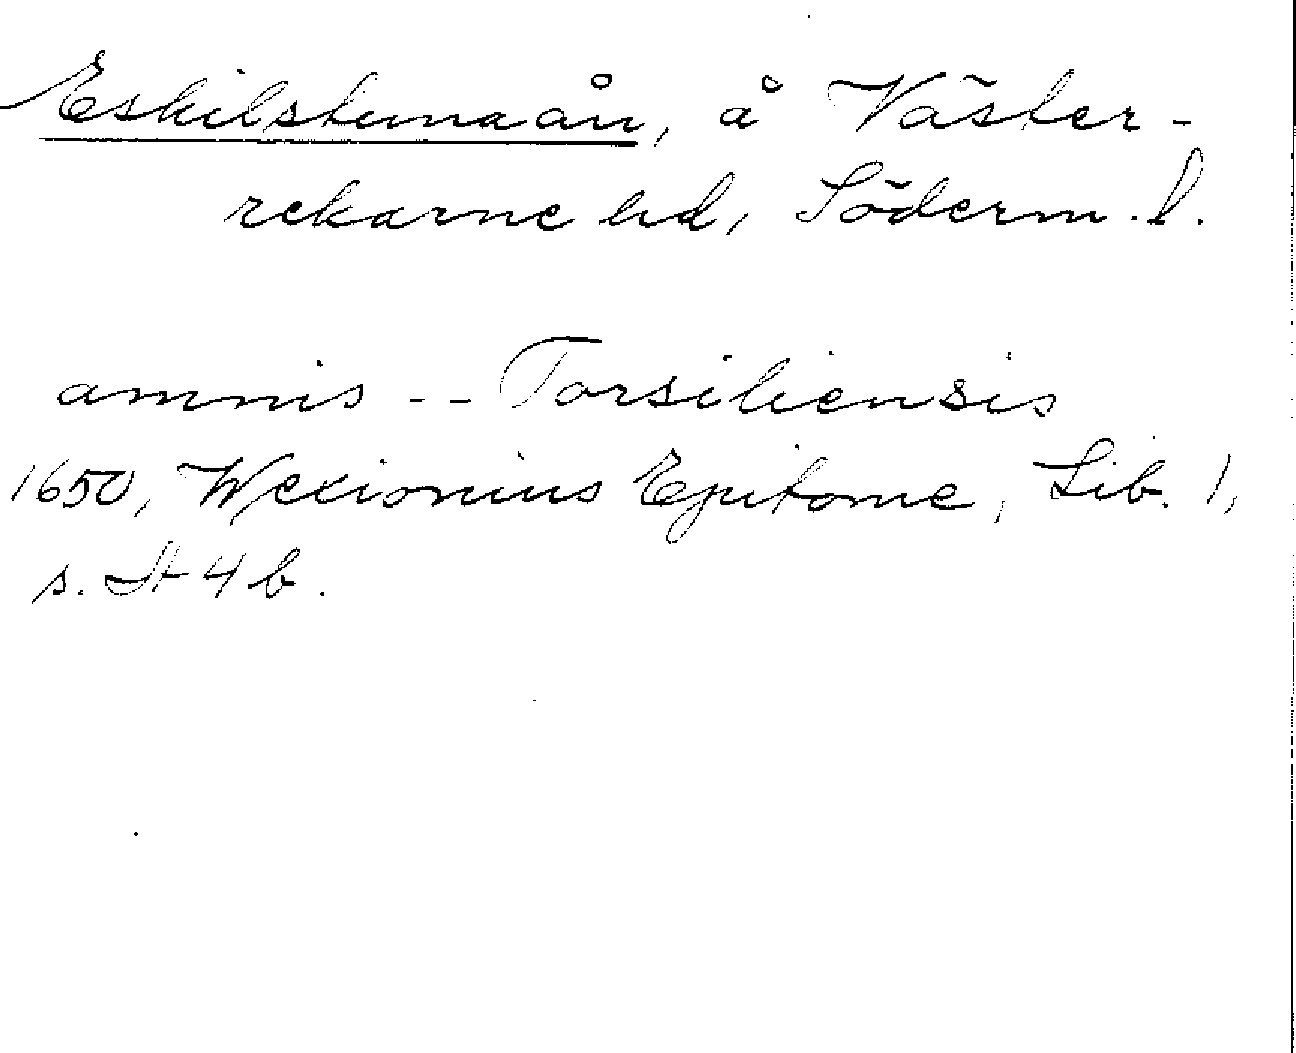 Eskilstunaån, å Väster-
rekarne hd, Söderm. l.
amnis -- Torsiliensis
1650, Wexionius Epitome, Lib. 1,
s. 4 b.